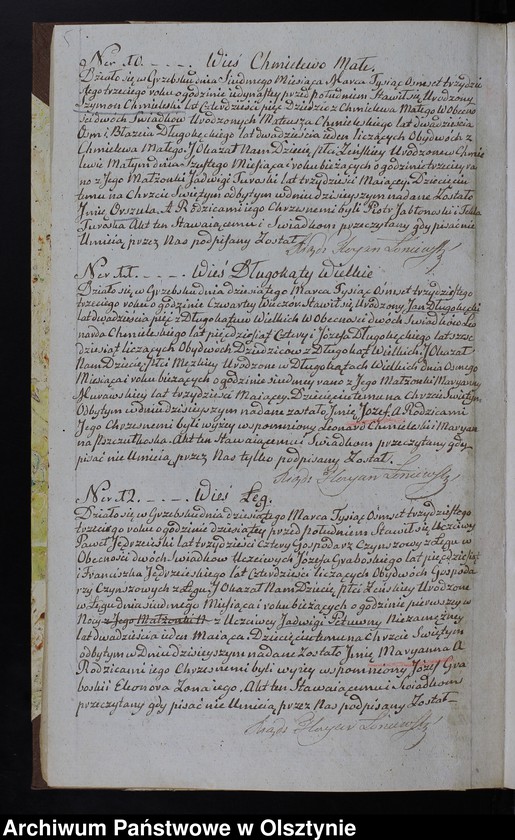 5
Ner. 10. - . - . - Wieś Chmielewo Małe.
Działo się w Grzebsku dnia Siódmego Miesiąca Marca Tysiąc Osmset trzydzie
stego trzeciego roku o godzinie iedynastey przed południem Stawił się Urodzony
Szymon Chmielski lat Czterdzieści pięć Dziedzic z Chmielewa Małego W Obecno
ści dwóch Swiadków Urodzonych Mateusza Chmieleskiego lat dwadzieścia
Osm i Błażeia Długokęckiego lat dwadzieścia ieden liczących Obydwóch z
Chmielewa Małego. I Okazał Nam Dziecię płci Zeńskiey Urodzone w Chmie
lewie Małym dnia Szóstego Miesiąca i roku bieżących o godzinie trzeciey ra
no z Jego Małżonki Jadwigi Turoski lat trzydzieści Maiącey. Dziecięciu
temu na Chrzcie Świętym odbytym w dniu dzisieyszym nadane Zostało
Jmie Orszula. A Rodzicami iego Chrzesnemi byli Piotr Jabłonoski i Tekla
Turoska. Akt ten Stawaiącemu i Swiadkom przeczytany gdy pisać nie
Umieią przez Nas podpisany Został.
Xiądz Liniewski
Ner. 11. - . - . - Wieś Długokąty Wielkie
Działo się w Grzebsku dnia dziesiątego Marca Tysiąc Osmset trzydziestego
trzeciego roku o godzinie Czwarty Wieczor Stawił się Urodzony Jan Długokęcki
lat dwadzieścia pięć z Długokątów Wielkich W Obecności dwóch Swiadków Leo
narda Chmieleskiego lat pięćdziesiąt Cztery i Józefa Długokęckiego lat sześć
dziesiąt liczących Obydwóch Dziedziców z Długokąt Wielkich. I Okazał
Nam Dziecię Płci Męzkiey Urodzone w Długokątach Wielkich dnia Osmego
Miesiąca i roku bieżących o godzinie siodmey rano z Jego Małżonki Maryanny
Murawskiey lat trzydzieści Maiącey. Dziecięciu temu na Chrzcie Świętym
Odbytym w dniu dzisieyszym nadane zostało Jmię Jozef. A Rodzicami
Jego Chrzesnemi byli wyżey wspomniony Leonard Chmieleski i Maryan
na Akt ten Stawaiącemu i Swiadkom przeczytany gdy
pisać nie Umieią, przez Nas tylko podpisany Został.
Xiądz Liniewski
Ner. 12. - . - . - Wieś Łęg.
Działo się w Grzebsku dnia dziesiątego Marca Tysiąc Osmset trzydziestego
trzeciego roku o godzinie dziesiątey przed południem Stawił się Uczciwy
Paweł Jędrzeieski lat trzydzieści Cztery Gospodarz Czynszowy z Łęgu w
Obecności dwóch Swiadków Uczciwych Józefa Graboskiego lat pięćdziesiąt
i Franciszka Jędrzeieskiego lat Czterdzieści liczących Obydwóch Gospoda
rzy Czynszowych z Łęgu. I Okazał Nam Dziecię płci Zeńskiey Urodzone
w Łęgu dnia siodmego Miesiąca i roku bieżących o godzinie pierwszey w
Nocy z Jego Małżonki z Uczciwey Jadwigi Niezamężney
lat dwadzieścia ieden Maiąca. Dziecięciu temu na Chrzcie Świętym
odbytym w Dniu dzisieyszym nadane zostało Jmie Maryanna A
Rodzicami iego Chrzesnemi byli wyżey wspomniony Józef Gra
boski i Eleonora Zona iego. Akt ten Stawaiącemu i Swiadkom
przeczytany gdy pisać nie Umieią przez Nas podpisany Został—
Xiądz Liniewski
Archiwum Państwowe w Olsztynie